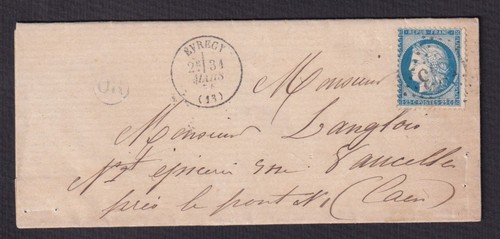 EVRECY
2E 31
MARS
(13)
OR
REPUB. FRANC.
25 C POSTES 25 C
Monsieur
Monsieur Langlois
Nt épicerie rue Vaucelles
près le pont N1 (Caen)